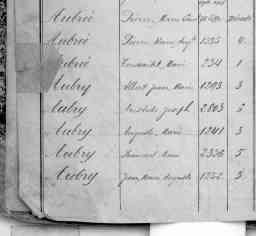 Aubrée Pierre, Marie
Aubrée Pierre Marie 4
Aubrée Marie 234 1
Aubry Albert Jean Marie 1293 3
Aubry Aristide Joseph 2803 5
Aubry Auguste Marie 1241 3
Aubry Marie 2336 5
Aubry Jean Marie Auguste 1252 3